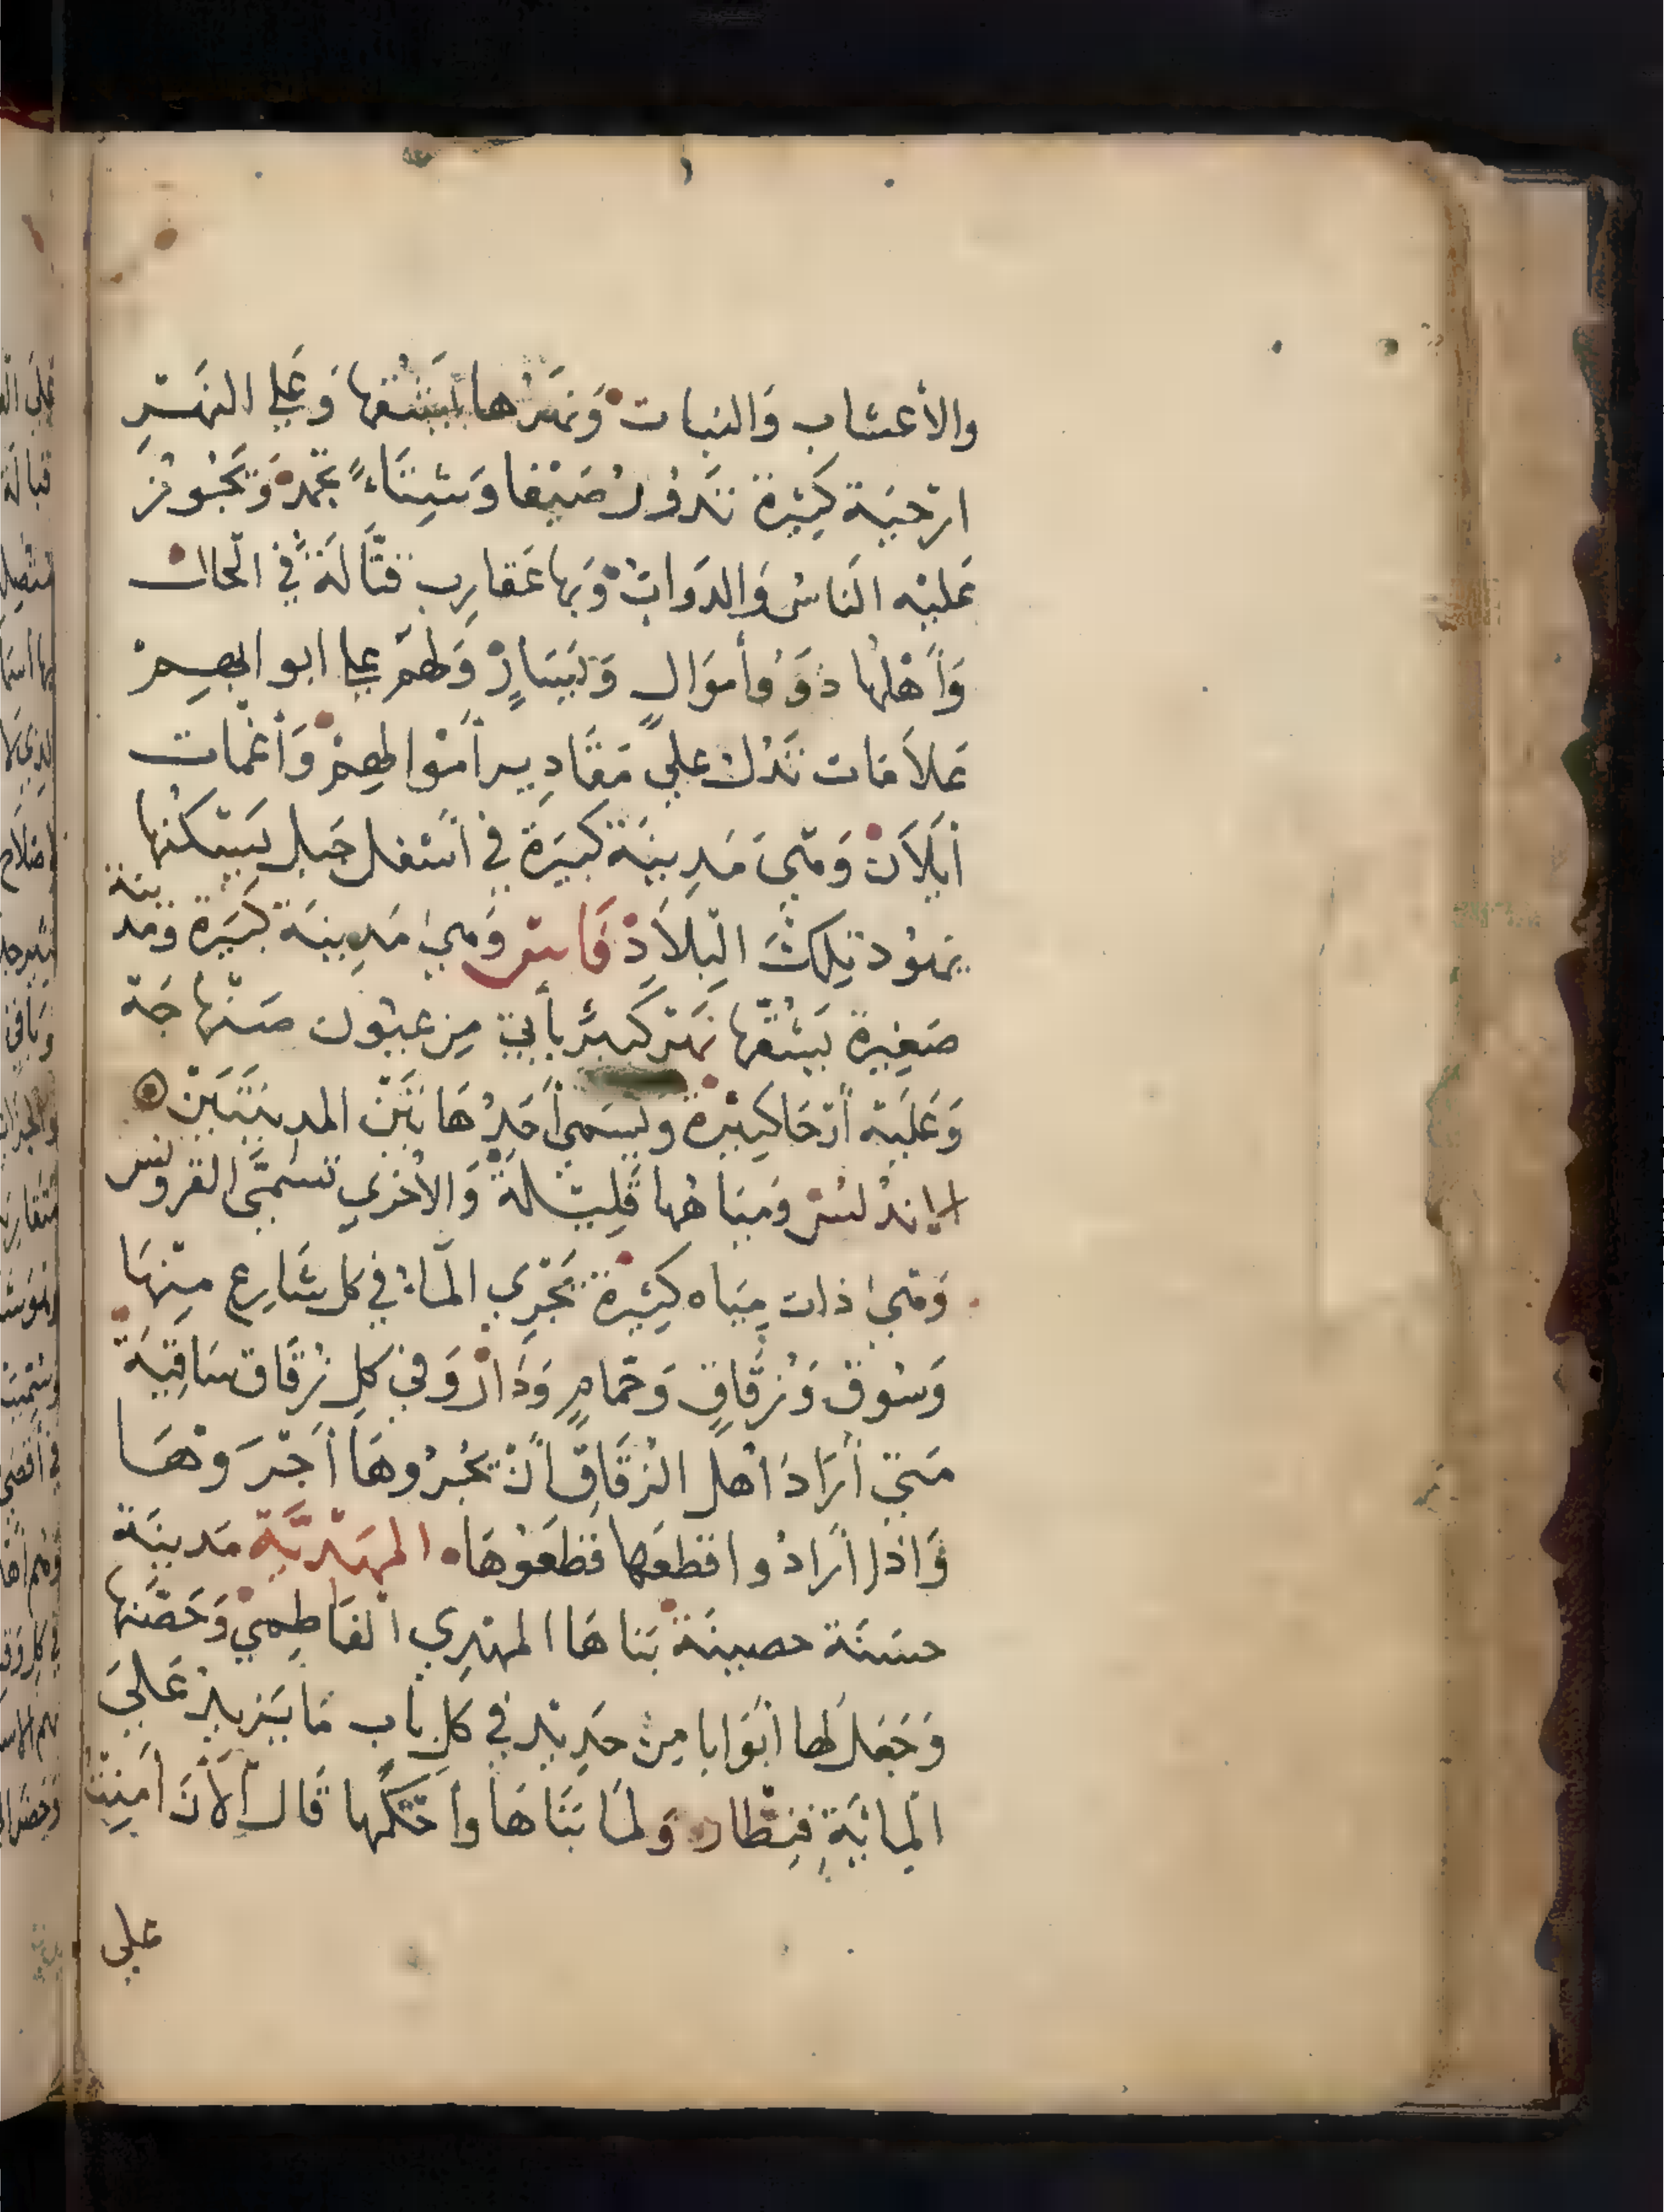 والأعشاب والنبات وَنهَرُها يَشُقها وَعَلي النهَر
ارْحيَة كَثِيرة تَدُورُ صَيْفا وَشِتَاءً يجمد وَيَجُوز
عَليْه الناسُ وَالدوَابُ وَبها عَقارِب قتَّالَةٌ في الحال
وَأهْلهُا ذَوُوأموَالٍ وَيَسَارٍ وَلهم علي ابوابهم
عَلاَمات تَدُل علي مَقَادِير أموالهم وَأغمات
أيلاَن وَهيَ مَدِينَة كَبيرَة في أسْفل جَبل يَسْكنُها
يَهوُد تِلكَ البلاَدِ فَاس وَهيَ مَدِينَة كَبيَرة وَمَدينة
صَغِيرة يَشُقُّها نهَر كَبيرٌ يأتي مِن عيُون صَنْهاجَة
وَعَليْه أرْحَا كثِيرة وَيُسَمي أحَدُ هَاتَيْن المدينَتَيْن
الاندلس وَمِيَاهُها قَلِيْلة وَالأخْري تُسَمَّي القرويين
وَهيَ ذات مِيَاه كَثِيرة يَجْرِي المَاء في كل شَارِع مِنْهَا
وَسُوق وَزُقَاقٍ وَحمامٍ وَدَار وَفي كل زُقَاق سَاقِيَة
مَتي أَرَادَ أهل الزقَاق أنْ يُجرُوهَا أجْرَوْهَا
وَاذا أرَادُوا قطعَها قطَعُوهَا المهَدِيَّة مَدينَة
حسَنَة حصينَة بَناهَا المهدِي الفَاطِمي وَحَصَّنها
وَجَعَل لها أبْوَابا مِن حَدِيْد في كل بَاب مَا يَزيد عَليَ
المِائَةِ قِنْطار وَلما بَنَاهَا وأحْكَمَها قَال الآنَ أمِنْتُ
علي